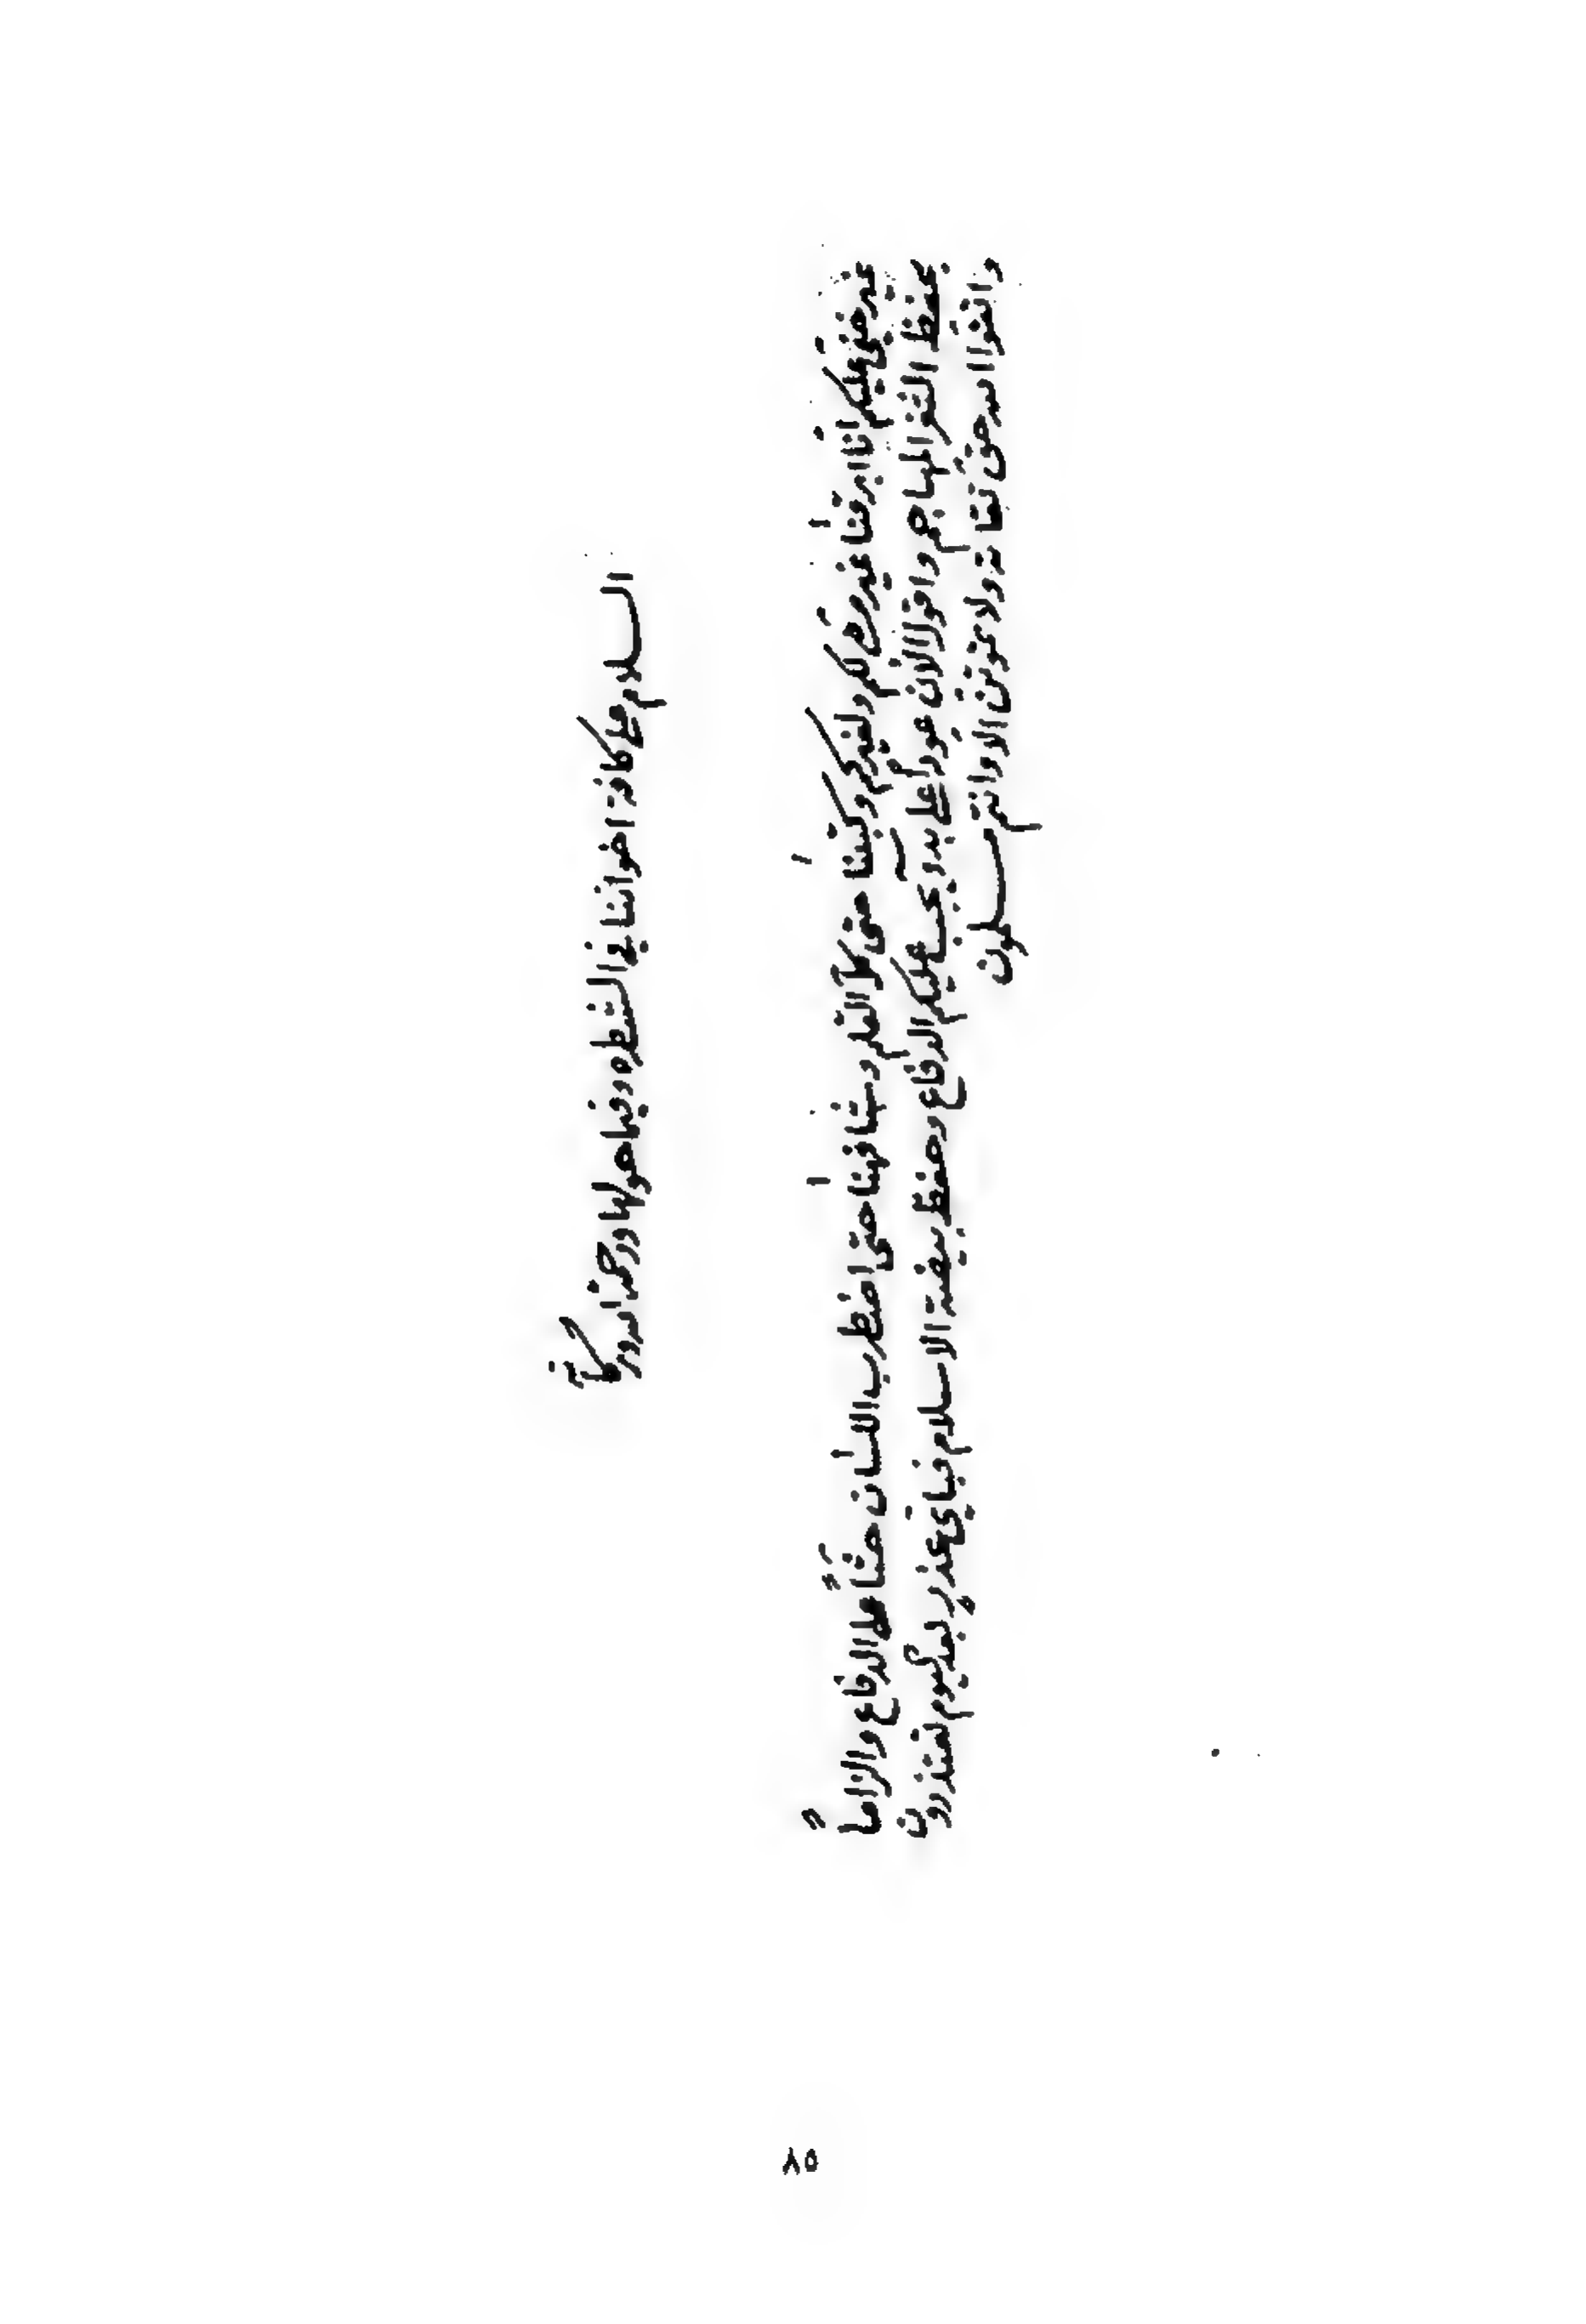 السلام على كافة اخواننا في الشطره وفيما حولها ورحمة الله وبركاته
غير خفي عليكم اننا ابرقنا غير مرة لكم ولغيركم وكتبنا حتى كلّ القلم وشافهنا حتى اضطرب اللسان حثاً على الدفاع والزاماً
بحفظ الثغر المهاجم واقول الان عوداً على بدء يجب عليكم الدفاع وحفظ بيضة الاسلام فبأي عذرٍ بعد اليوم تعتذرون
واتقوا الله حق تقاته ولا تموتن الا وانتم مسلمون
٨٥